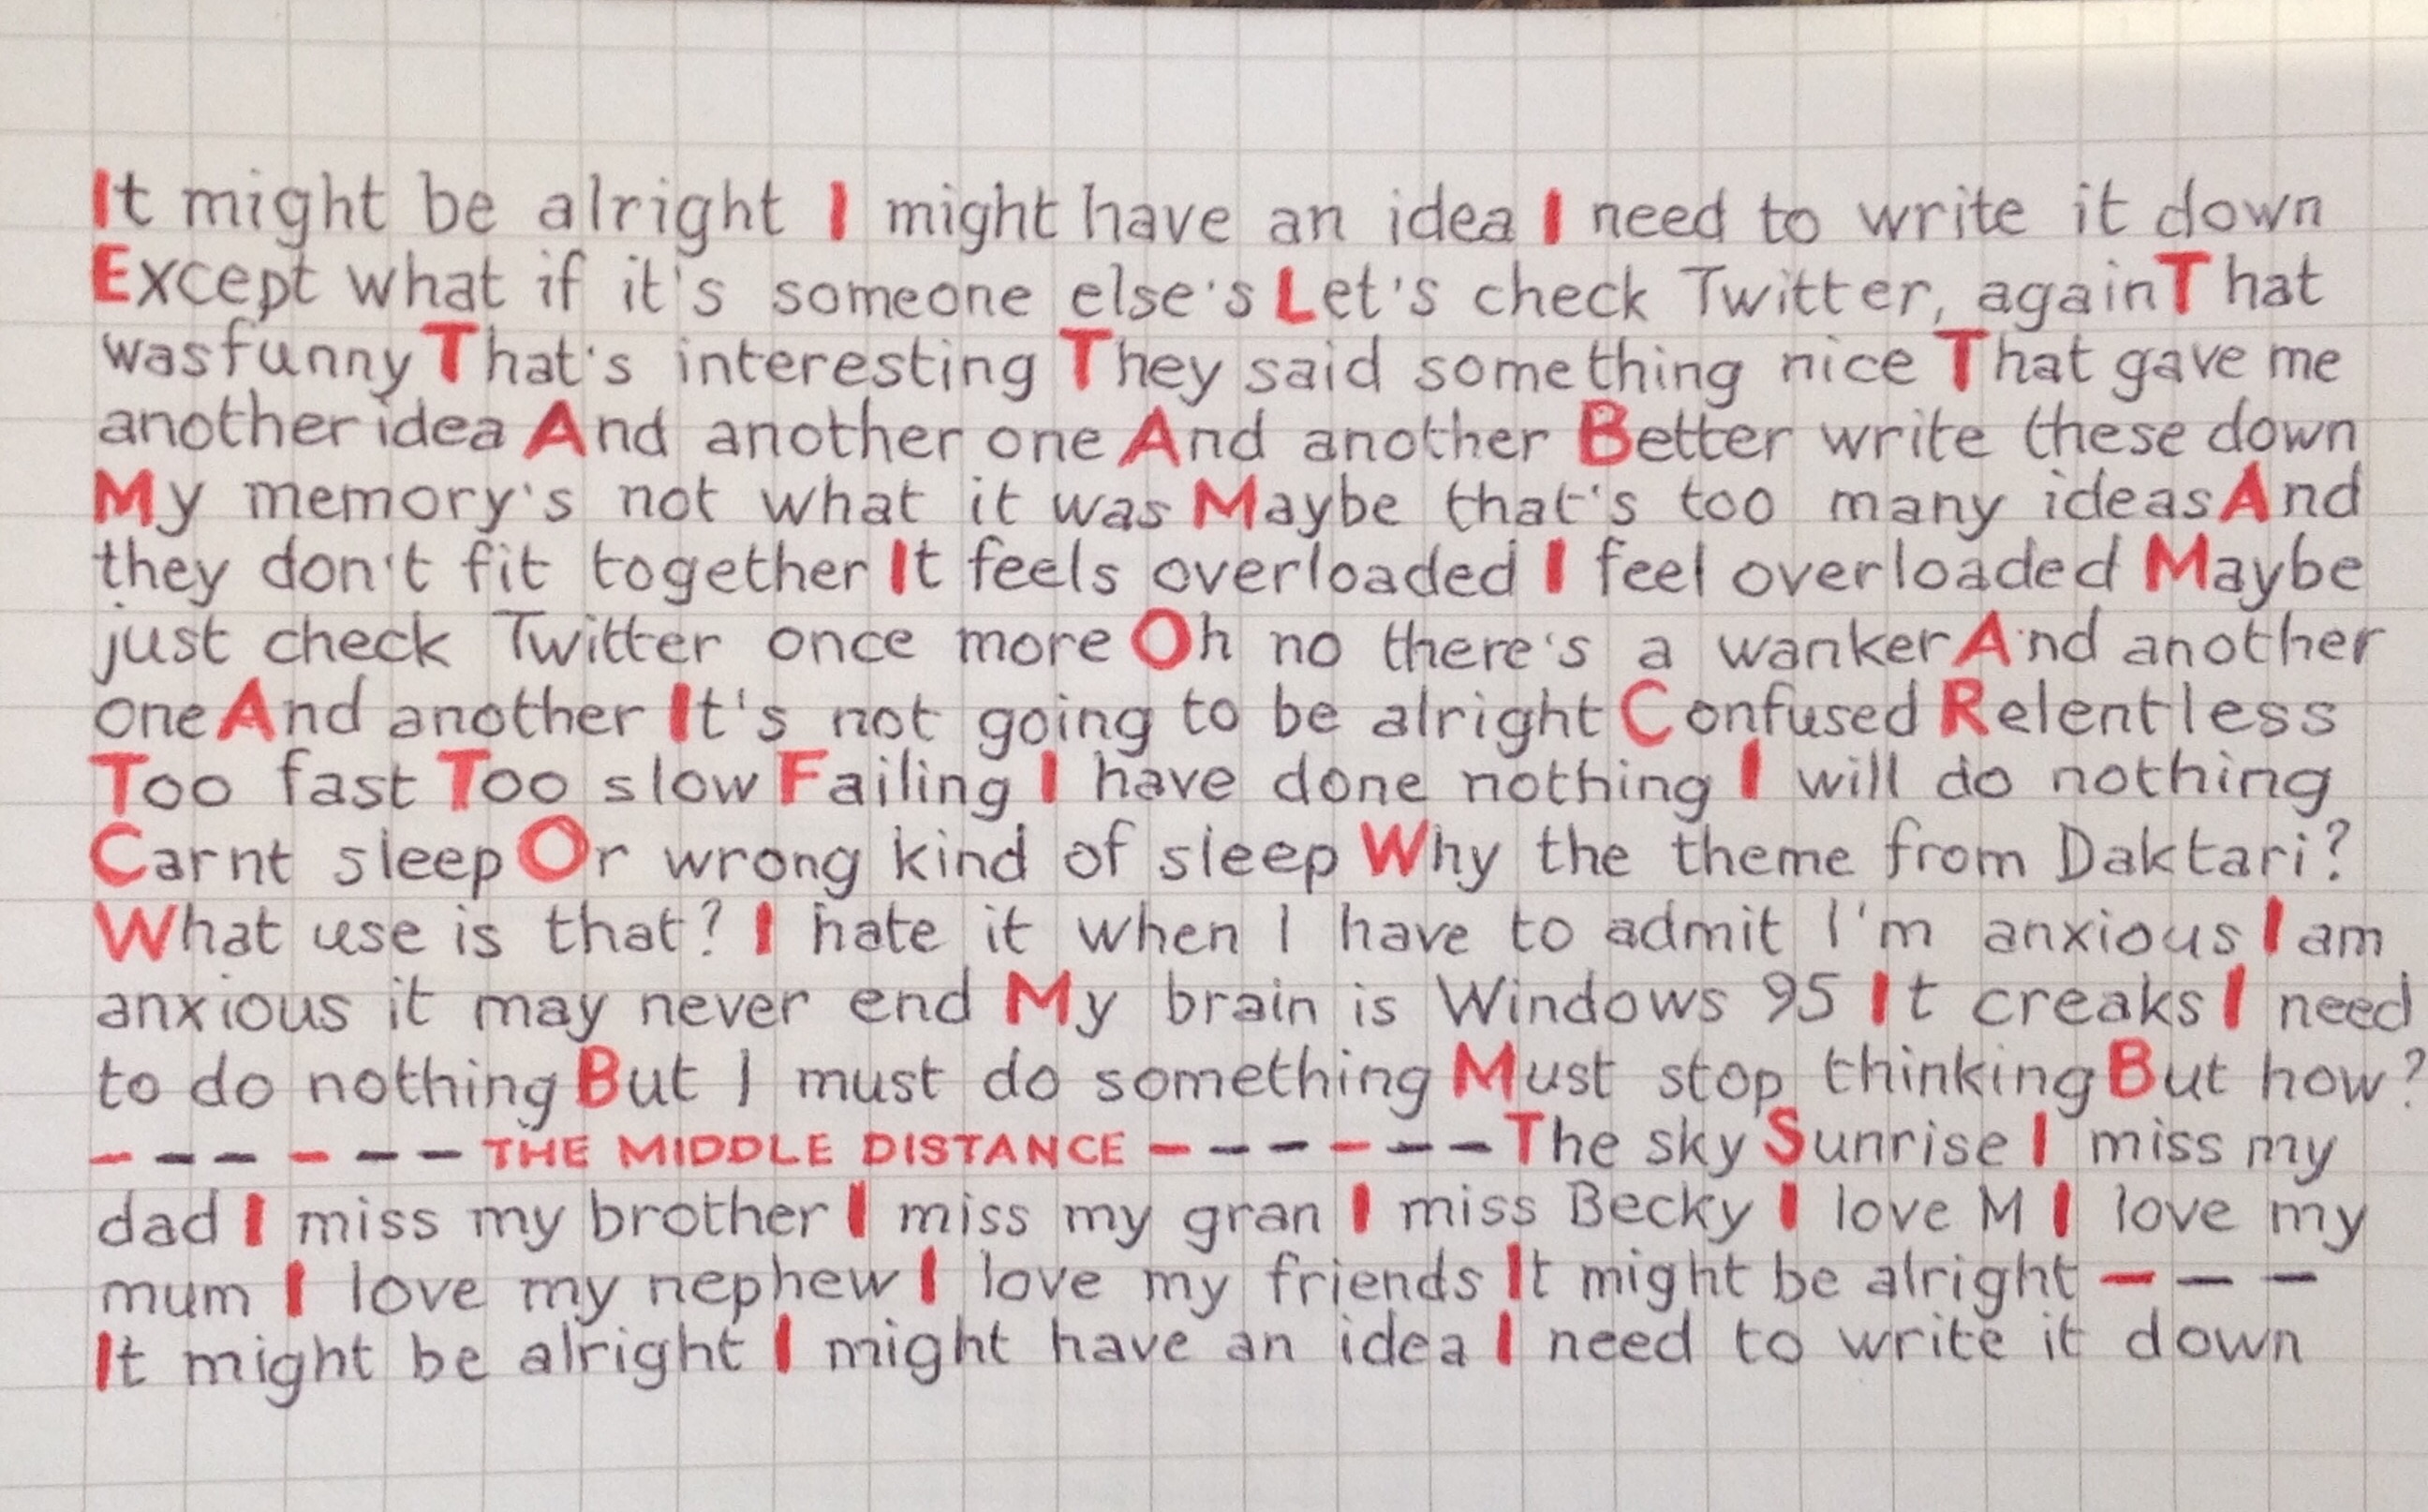 It might be alright I might have an idea I need to write it down
Except what if it's someone else's Let's check Twitter, again That
was funny That's interesting They said something nice That gave me
another idea And another one And another Better write these down
My memory's not what it was Maybe that's too many ideas And
they don't fit together It feels overloaded I feel overloaded Maybe
just check Twitter once more Oh no there's a wanker And another
one And another It's not going to be alright Confused Relentless
Too fast Too slow Failing I have done nothing I will do nothing
Carnt sleep Or wrong kind of sleep Why the theme from Daktari?
What use is that? I hate it when I have to admit I'm anxious I am
anxious it may never end My brain is Windows 95 It creaks I need
to do nothing But I must do something Must stop thinking But how?
– – – – – – THE MIDDLE DISTANCE – – – – – – The sky Sunrise I miss my
dad I miss my brother I miss my gran I miss Becky I love M I love my
mum I love my nephew I love my friends It might be alright – – –
It might be alright I might have an idea I need to write it down